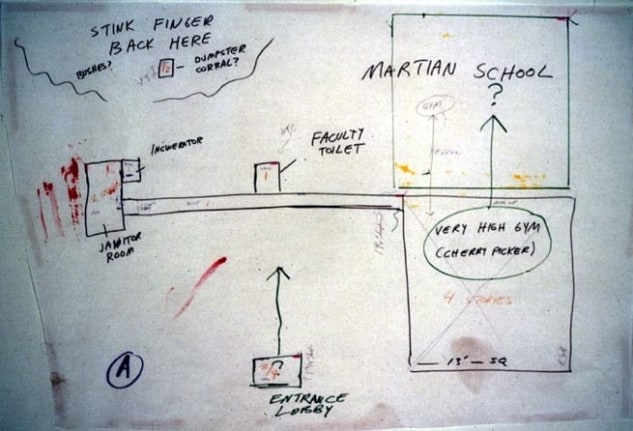 STINK FINGER
BACK HERE
BUSHES?
DUMPSTER
CORRAL?
MARTIAN SCHOOL
?
GYM
INCINERATOR
FACULTY
TOILET
JANITOR
ROOM
VERY HIGH GYM
(CHERRY PICKER)
4 STORIES
15' SQ
A
?
ENTRANCE
LOBBY